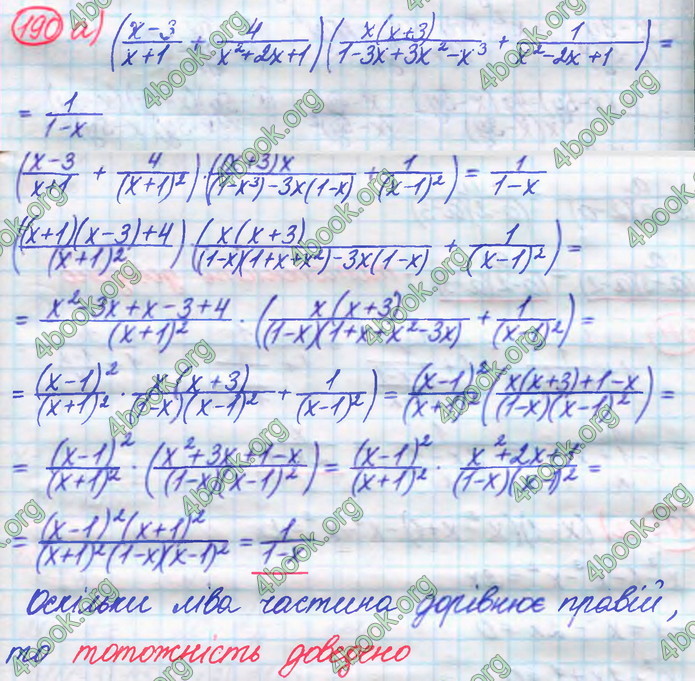 190 а) ((x-3)/(x+1) + 4/(x²+2x+1)) (x(x+3)/(1-3x+3x²-x³) + 1/(x²-2x+1)) =
= 1/(1-x)
((x-3)/(x+1) + 4/(x+1)²) · ((x+3)x/((1-x³)-3x(1-x)) + 1/(x-1)²) = 1/(1-x)
(((x+1)(x-3)+4)/(x+1)²) · (x(x+3)/((1-x)(1+x+x²)-3x(1-x)) + 1/(x-1)²) =
= (x²-3x+x-3+4)/(x+1)² · (x(x+3)/((1-x)(1+x+x²-3x)) + 1/(x-1)²) =
= (x-1)²/(x+1)² · x(x+3)/((1-x)(x-1)²) + 1/(x-1)²) = (x-1)²/(x+1)² (x(x+3)+1-x)/((1-x)(x-1)²) =
= (x-1)²/(x+1)² · ((x²+3x+1-x)/((1-x)(x-1)²)) = (x-1)²/(x+1)² · (x²+2x+1)/((1-x)(x-1)²) =
= (x-1)²(x+1)²/((x+1)²(1-x)(x-1)²) = 1/(1-x)
Оскільки ліва частина дорівнює правій,
то тотожність доведено
4book.org